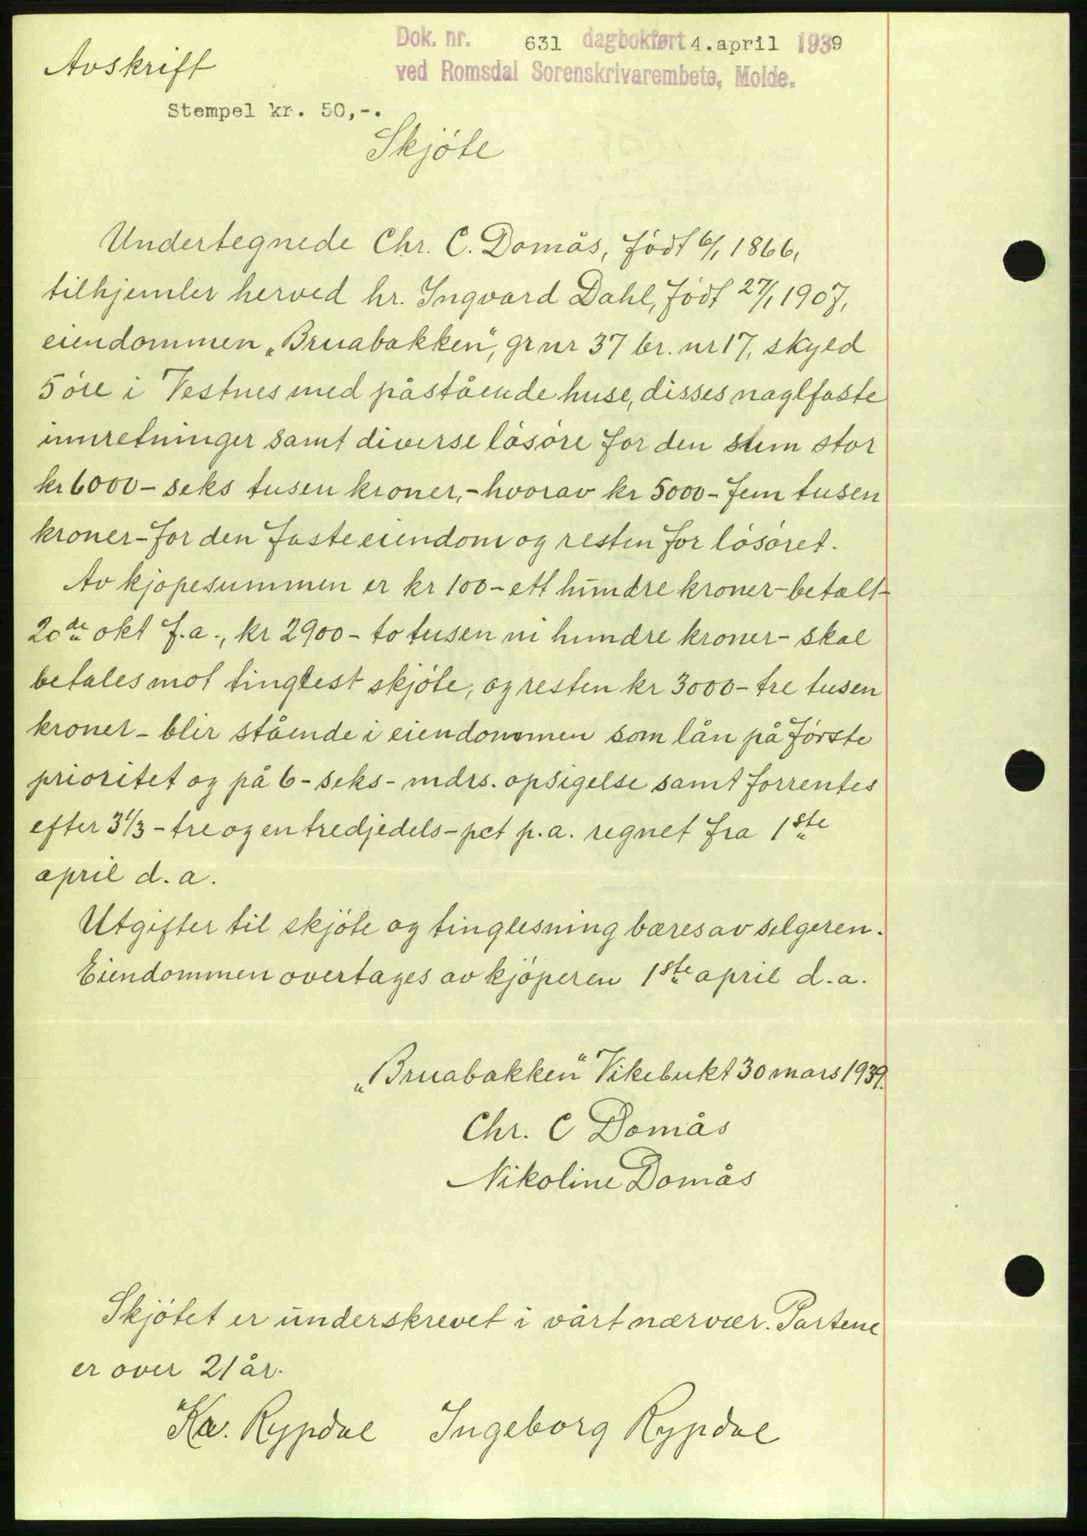 Avskrift
Dok. nr. 631 dagbokført 4. april 1939
ved Romsdal Sorenskrivarembete, Molde.
Stempel kr. 50,-.
Skjóte
Undertegnede Chr. C. Domås, født 6/1 1866,
tilhjemler herved hr. Ingvard Dahl, født 27/1 1907,
eiendommen „Bruabakken", gr nr 37 br. nr 17, skyld
5 óre i Vestnes med påstående huse, disses naglfaste
innretninger samt diverse lósóre for den sum stor
kr 6000 – seks tusen kroner, – hvorav kr 5000 – fem tusen
kroner – for den faste eiendom og resten for lósóret.
Av kjópesummen er kr 100 – ett hundre kroner – betalt
20de okt f.a., kr 2900 – to tusen ni hundre kroner – skal
betales mot tinglest skjóte, og resten kr 3000 – tre tusen
kroner – blir stående i eiendommen som lån på fórste
prioritet og på 6 – seks – mdrs. opsigelse samt forrentes
efter 3 1/3 – tre og en tredjedels – pct p.a. regnet fra 1ste
april d.a.
Utgifter til skjóte og tinglesning bæres av selgeren.
Eiendommen overtages av kjóperen 1ste april d.a.
„Bruabakken" Vikebukt 30 mars 1939.
Chr. C Domås
Nikoline Domås
Skjótet er underskrevet i vårt nærvær. Partene
er over 21 år.
Kr. Rypdal Ingeborg Rypdal